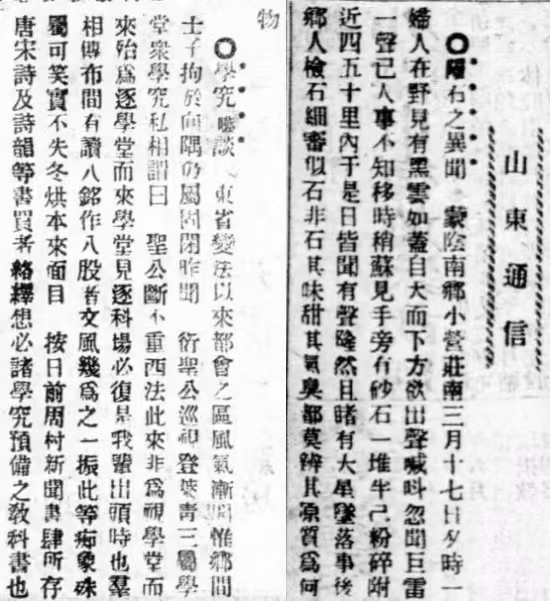 山東通信
〇隕石之異聞 蒙陰南鄉小營莊南三月十七日夕時一
婦人在野見有黑雲如蓋自天而下方欲出聲喊呌忽聞巨雷
一聲已人事不知移時稍蘇見手旁有砂石一堆半已粉碎附
近四五十里內于是日皆聞有聲隆然且睹有大星墜落事後
鄉人檢石細審似石非石其味甜其氣臭都莫辨其原質爲何
物
〇學究囈談 東省變法以來都會之區風氣漸開惟鄉間
士子拘於向隅仍屬固閉昨聞 衍聖公巡視登萊靑三屬學
堂衆學究私相謂曰 聖公斷不重西法此來非爲視學堂而
來殆爲逐學堂而來學堂見逐科場必復是我輩出頭時也羣
相傳布間有讀八銘作八股者文風幾爲之一振此等痴象殊
屬可笑實不失冬烘本來面目 按日前周村新聞書肆所存
唐宋詩及詩韻等書買者絡繹想必諸學究預備之敎科書也